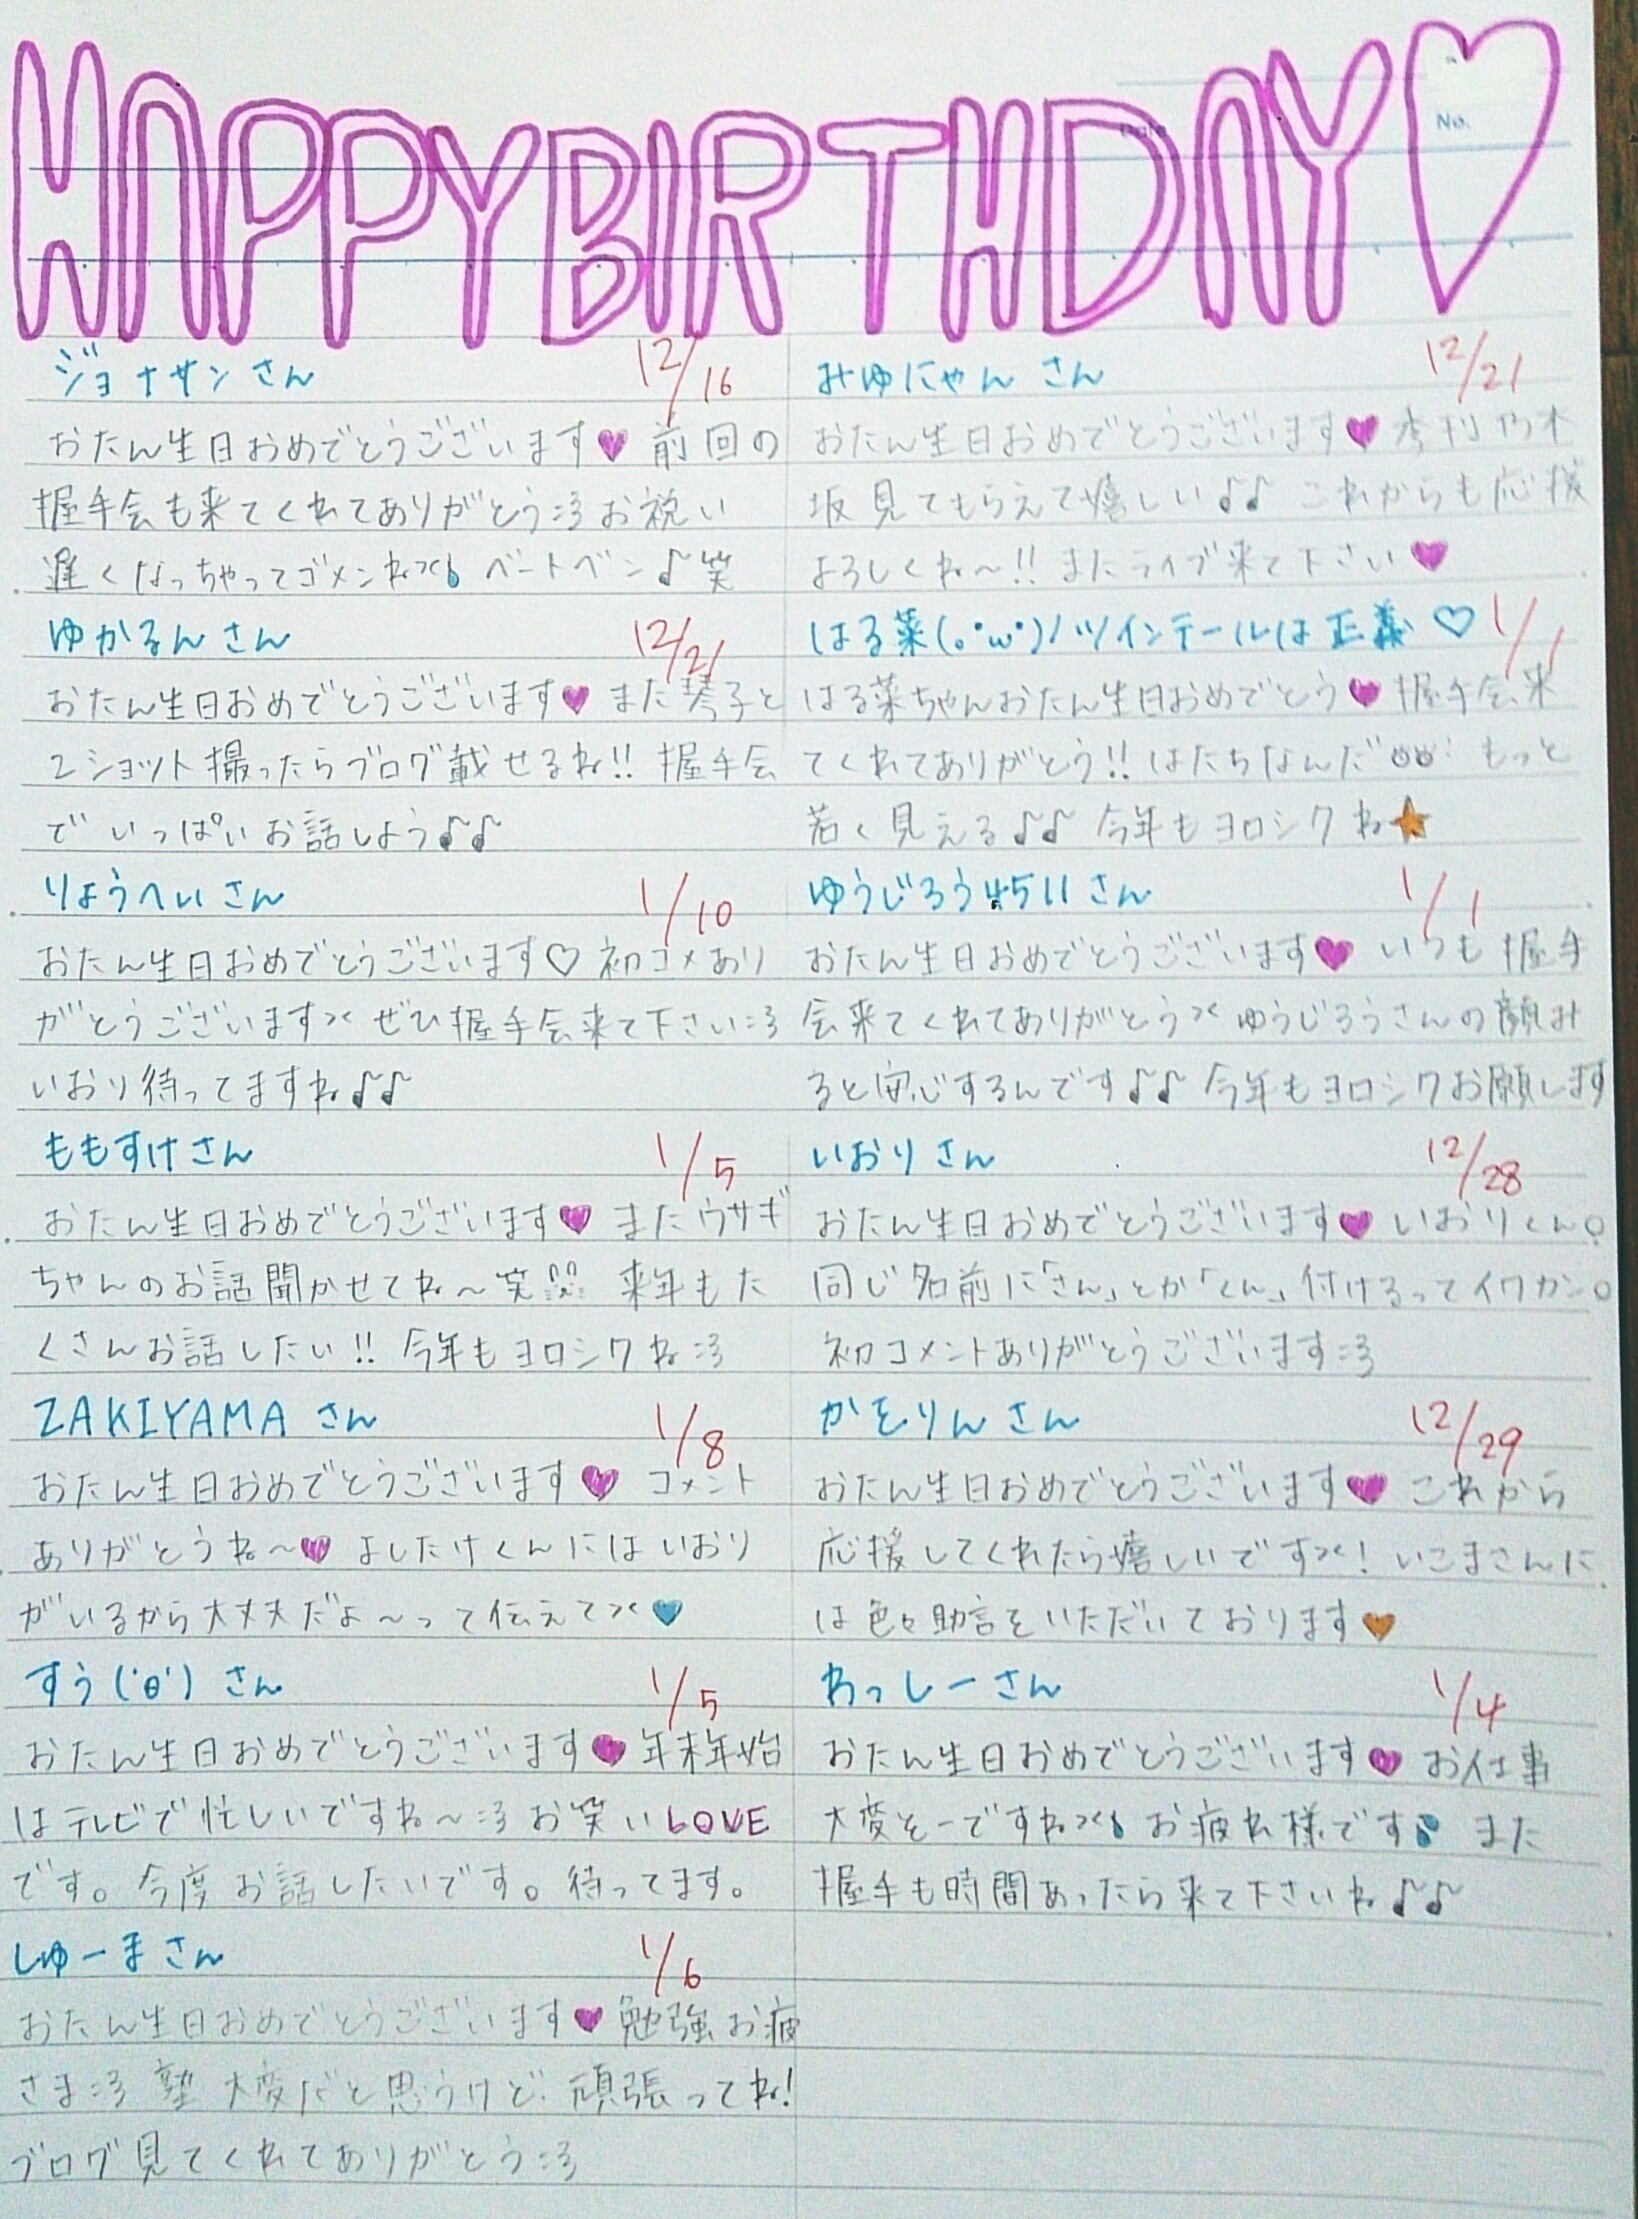 HAPPY BIRTHDAY♡
No.
ジョナサンさん 12/16
おたん生日おめでとうございます♥ 前回の
握手会も来てくれてありがとう:3 お祝い
遅くなっちゃってゴメンね>< ベートベン♪笑
ゆかるんさん 12/21
おたん生日おめでとうございます♥ また琴子と
2ショット撮ったらブログ載せるね!! 握手会
でいっぱいお話しよう♪♪
りょうへいさん 1/10
おたん生日おめでとうございます♡ 初コメあり
がとうございます>< ぜひ握手会来て下さい:3
いおり待ってますね♪♪
ももすけさん 1/5
おたん生日おめでとうございます♥ またウサギ
ちゃんのお話聞かせてね〜笑 来年もた
くさんお話したい!! 今年もヨロシクね:3
ZAKIYAMAさん 1/8
おたん生日おめでとうございます♥ コメント
ありがとうね〜♥ よしたけくんにはいおり
がいるから大丈夫だよ〜って伝えて><♥
すう('θ')さん 1/5
おたん生日おめでとうございます♥ 年末年始
はテレビで忙しいですね〜:3 お笑いLOVE
です。今度お話したいです。待ってます。
しゅーまさん 1/6
おたん生日おめでとうございます♥ 勉強お疲
さま:3 塾大変だと思うけど頑張ってね!
ブログ見てくれてありがとう:3
みゆにゃんさん 12/21
おたん生日おめでとうございます♥ 季刊乃木
坂見てもらえて嬉しい♪♪ これからも応援
よろしくね〜!! またライブ来て下さい♥
はる菜(。•ω•)ノツインテールは正義♡ 1/1
はる菜ちゃんおたん生日おめでとう♥ 握手会来
てくれてありがとう!! はたちなんだ もっと
若く見える♪♪ 今年もヨロシクね★
ゆうじろう4511さん 1/1
おたん生日おめでとうございます♥ いつも握手
会来てくれてありがとう>< ゆうじろうさんの顔み
ると安心するんです♪♪ 今年もヨロシクお願します
いおりさん 12/28
おたん生日おめでとうございます♥ いおりくん。
同じ名前に「さん」とか「くん」付けるってイワカン。
初コメントありがとうございます:3
かをりんさん 12/29
おたん生日おめでとうございます♥ これから
応援してくれたら嬉しいです><! いこまさんに
は色々助言をいただいております♥
わっしーさん 1/4
おたん生日おめでとうございます♥ お仕事
大変そーですね>< お疲れ様です また
握手も時間あったら来て下さいね♪♪